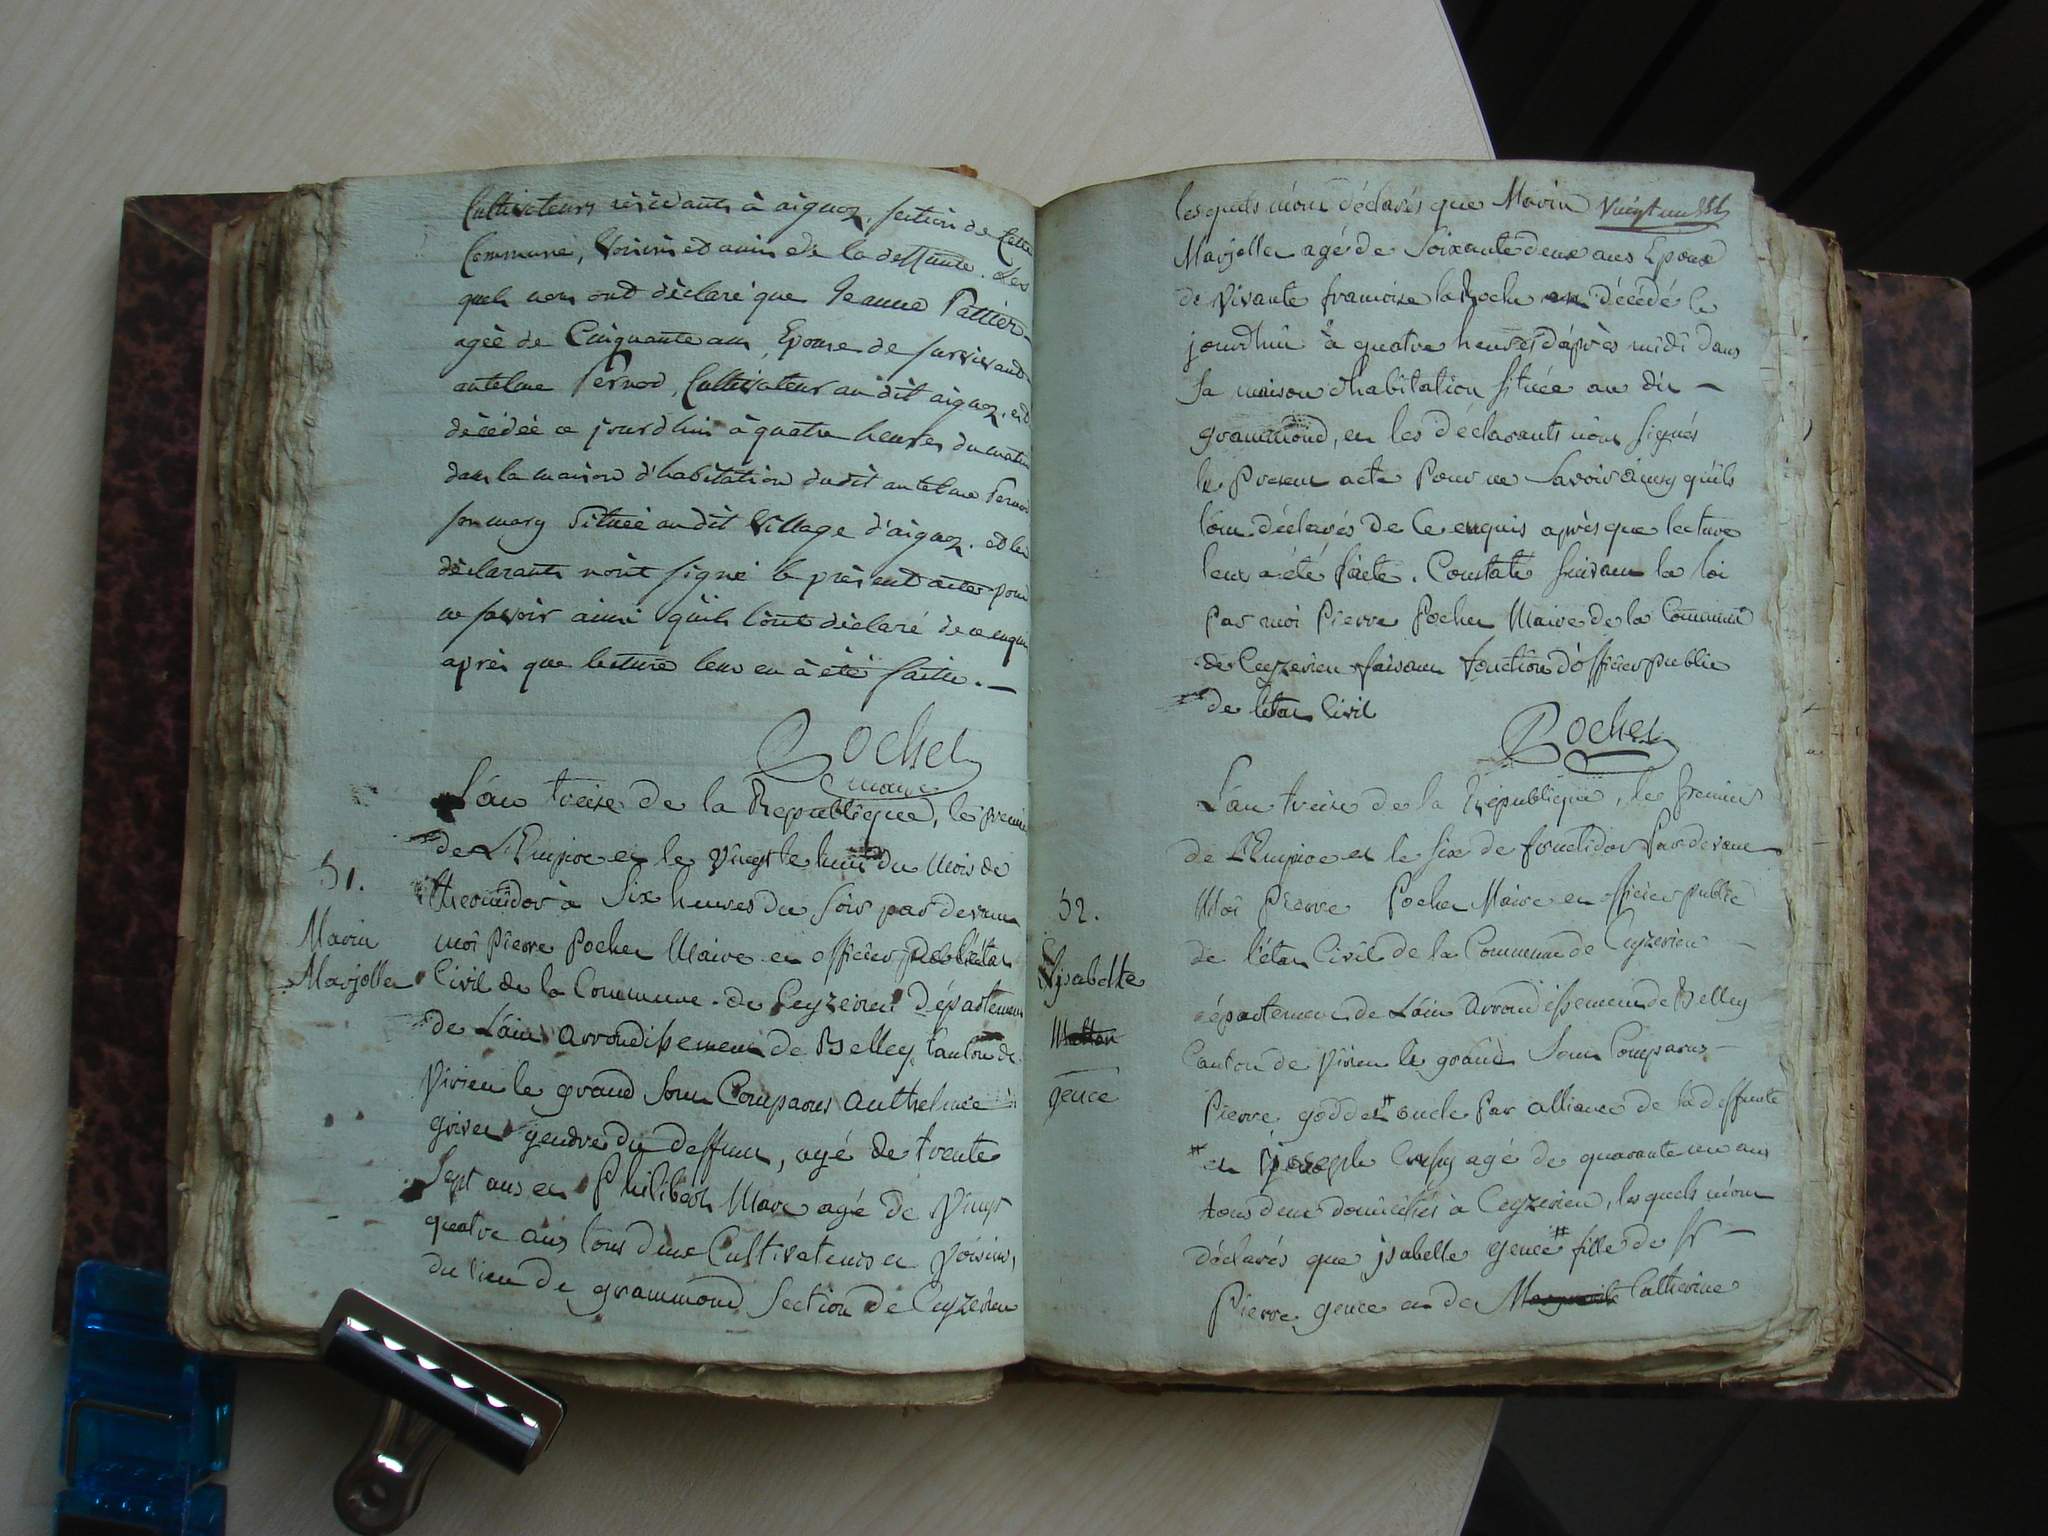 Cultivateurs résidants à aignoz, section de Cette
Commune, Voisins et amis de la deffunte. Les
quels nous ont déclaré que Jeanne Pattier
agée de Cinquante ans, Epouse de survivant
antelme Pernod, Cultivateur au dit aignoz, est
décédée ce jourd'hui à quatre heures du matin
dans la maison d'habitation dudit antelme Pernod
son mary Située au dit Village d'aignoz. et les
déclarants n'ont signé le présent acte pour
ne savoir ainsi qu'ils l'ont déclaré de ce enquis
après que lecture leur en à été faitte. —
Pochet
maire
L'an treize de la Republique, le premier
de L'Empire et le Vingt huit du Mois de
thermidor à Six heures du soir par devant
51.
Marin
Marjollet
moi Pierre Pochet Maire et officier public de l'état
Civil de la Commune de Ceyzerieu Département
de L'ain arrondissement de Belley, Canton de
Virieu le grand Sont Comparus Anthelme
grivet gendre du deffunt, agé de trente
Sept ans et Philibert Marc agé de Vingt
quatre ans tous deux Cultivateurs et Voisins,
du lieu de grammond Section de Ceyzerieu
lesquels m'ont déclarés que Marin Vingt un
Marjollet agé de Soixante deux ans Epoux
de Vivante francoise la Roche est décédé ce
jourdhui à quatre heures d'après midi dans
Sa maison d'habitation située au dit —
grammond, et les déclarants n'ont signés
le Present acte Pour ne Savoir ainsy qu'ils
l'ont déclarés de ce enquis après que lecture
leur a été faite. Constaté suivant la loi
Par moi Pierre Pochet Maire de la Commune
de Ceyzerieu faisant fonction d'officier public
de l'état Civil
Pochet
L'an treize de la République, le Premier
de L'Empire et le six de fructidor Par devant
52.
Elisabelle
gence
Moi Pierre Pochet Maire et officier public
de l'état Civil de la Commune de Ceyzerieu —
département de L'ain arrondissement de Belley
Canton de Virieu le grand Sont Comparus —
Pierre goddet # oncle Par alliance de la deffunte
# et joseph agé de quarante un ans
tous deux domiciliés à Ceyzerieu, lesquels m'ont
déclarés que jsabelle gence # fille de Sr —
Pierre gence et de Marguerite Catherine